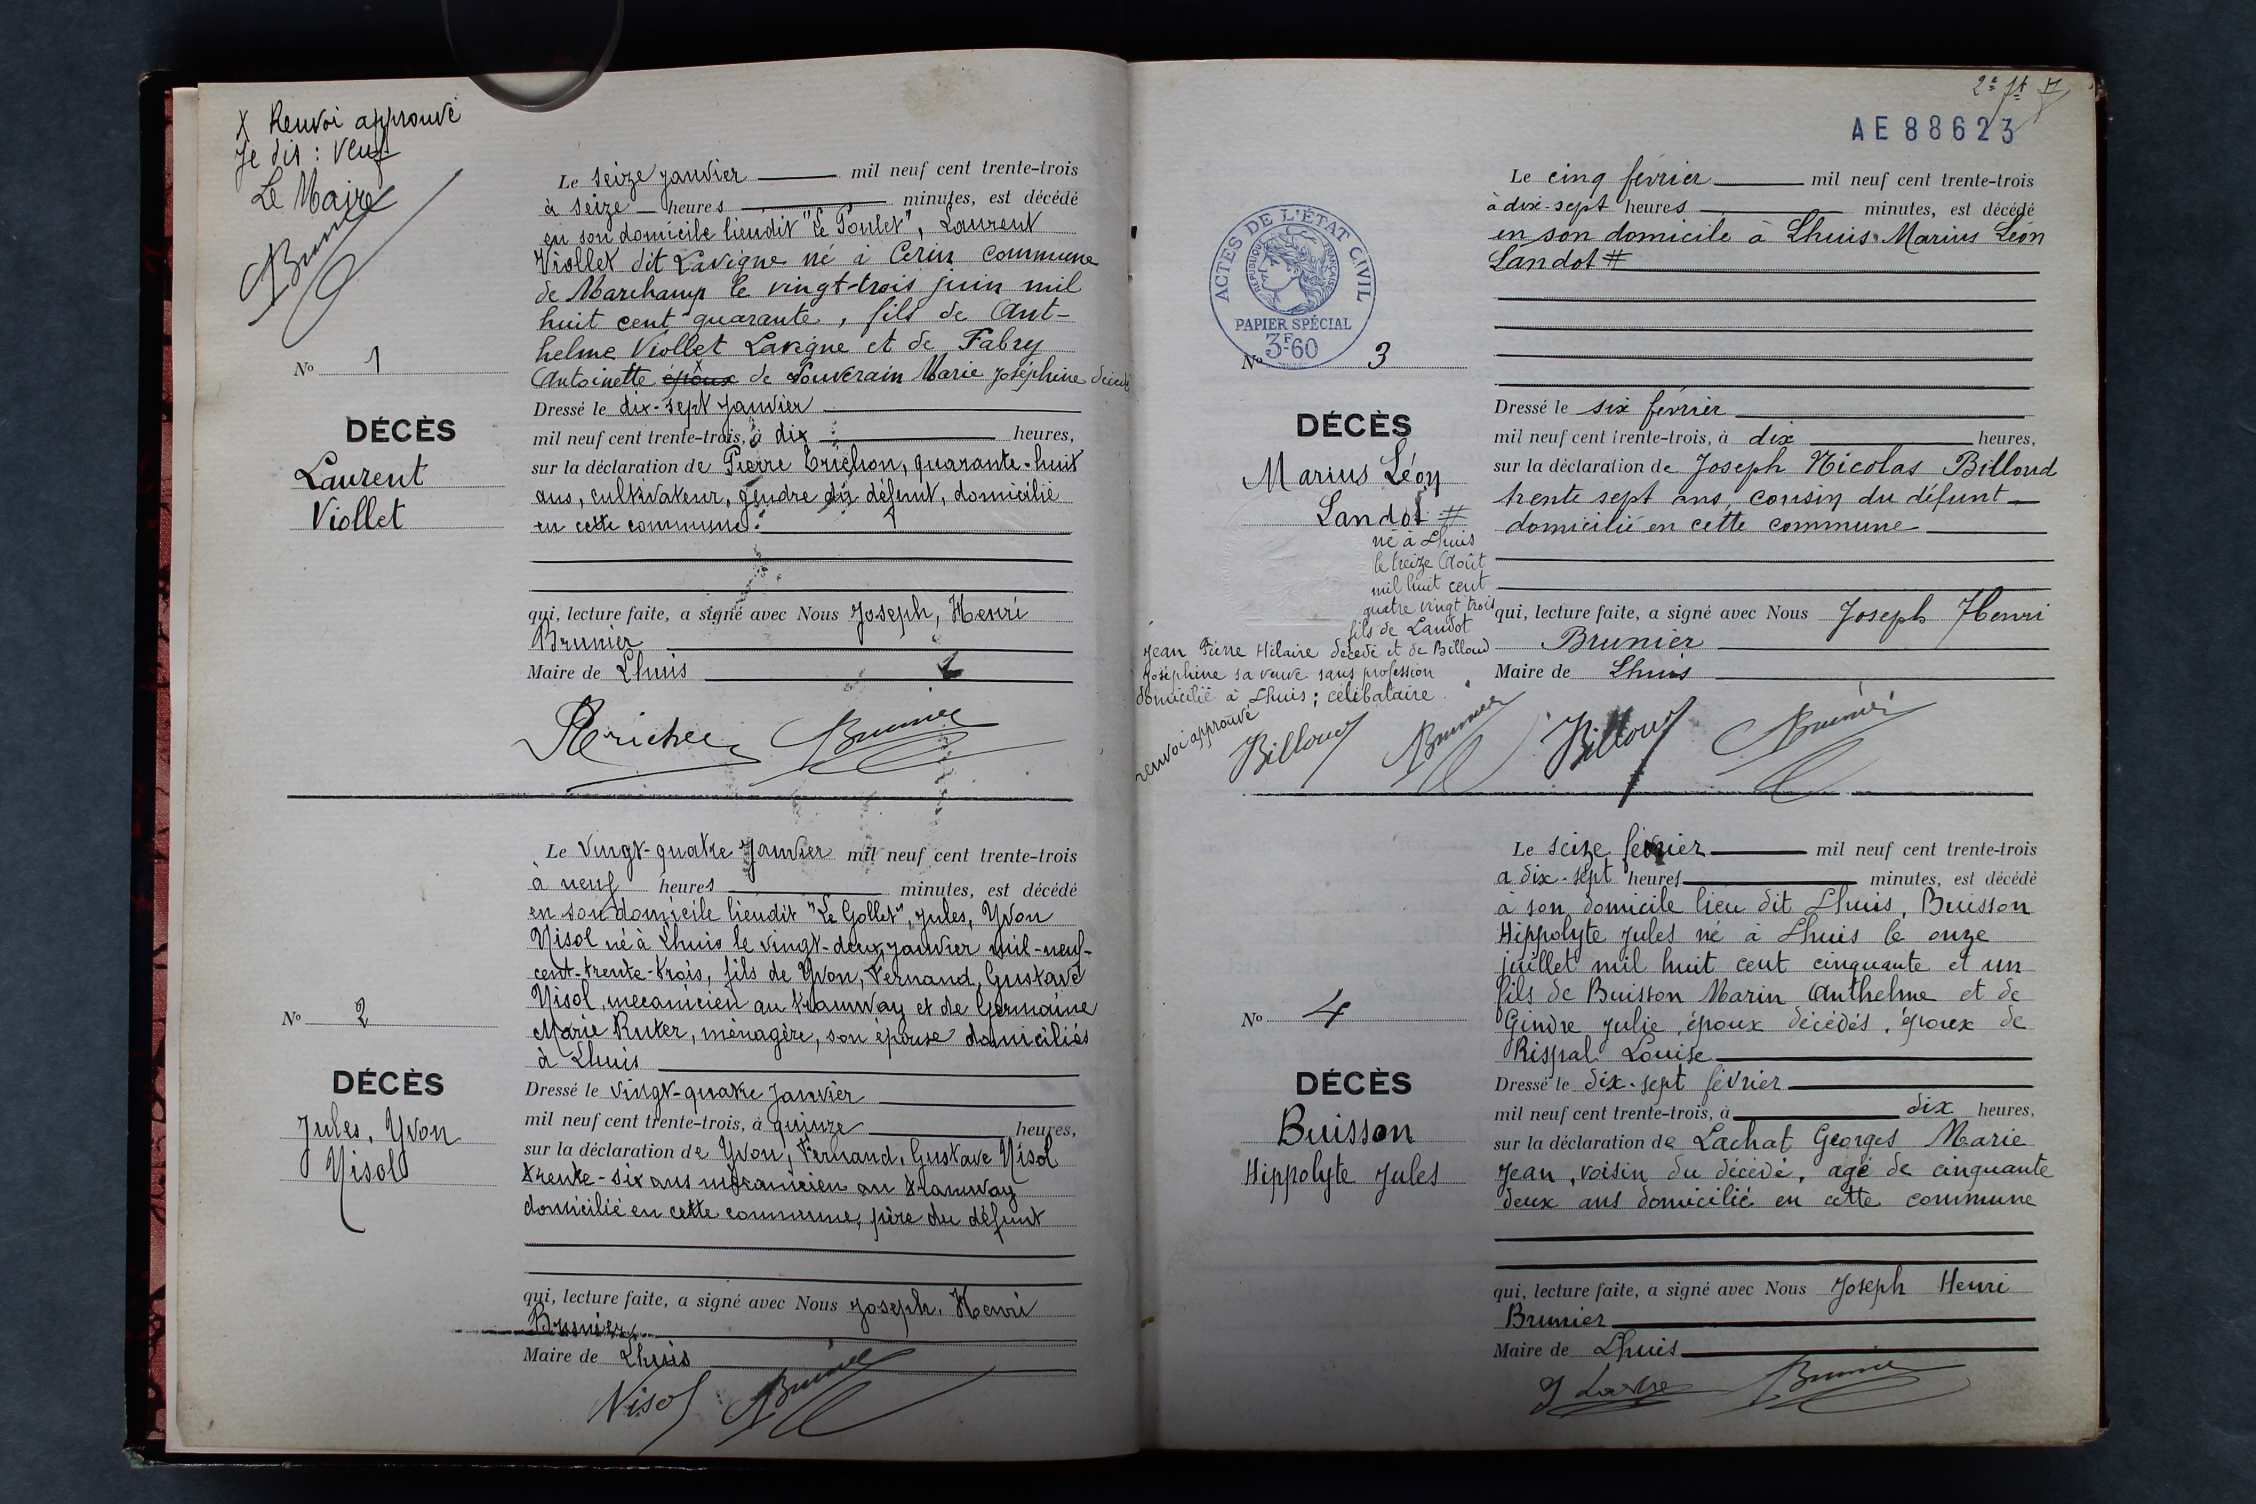 X Renvoi approuvé
Je dis : veuf
Le Maire
Brunier
N° 1
DÉCÈS
Laurent
Viollet
Le seize janvier mil neuf cent trente-trois
à seize heures minutes, est décédé
en son domicile lieudit "Le Poulet", Laurent
Viollet dit Lavigne né à Cerin commune
de Marchamp le vingt-trois juin mil
huit cent quarante, fils de Ant-
helme Viollet Lavigne et de Fabry
Antoinette époux X de Souverain Marie Joséphine
Dressé le dix-sept janvier
mil neuf cent trente-trois, à dix heures,
sur la déclaration de Pierre quarante-huit
ans, cultivateur, gendre du défunt, domicilié
en cette commune.
qui, lecture faite, a signé avec Nous Joseph, Henri
Brunier
Maire de Lhuis
Brunier
N° 2
DÉCÈS
Jules, Yvon
Nisol
Le vingt-quatre janvier mil neuf cent trente-trois
à neuf heures minutes, est décédé
en son domicile lieudit "Le Gollet", Jules, Yvon
Nisol né à Lhuis le vingt-deux janvier mil-neuf-
cent-trente-trois, fils de Yvon, Fernand, Gustave
Nisol, mecanicien au tramway et de Germaine
Marie Ruter, ménagère, son épouse domiciliés
à Lhuis
Dressé le vingt-quatre janvier
mil neuf cent trente-trois, à quinze heures,
sur la déclaration de Yvon, Fernand, Gustave Nisol
trente-six ans mécanicien au tramway
domicilié en cette commune, père du défunt
qui, lecture faite, a signé avec Nous Joseph, Henri
Brunier
Maire de Lhuis
Nisol Brunier
AE 88623
ACTES DE L'ÉTAT CIVIL
RÉPUBLIQUE FRANÇAISE
PAPIER SPÉCIAL
3F60
N° 3
DÉCÈS
Marius Léon
Landot #
né à Lhuis
le treize Août
mil huit cent
quatre vingt trois
fils de Landot
Jean Pierre Hilaire décédé et de Billoud
Joséphine sa veuve sans profession
domicilié à Lhuis ; célibataire.
renvoi approuvé
Billoud Brunier
Le cinq février mil neuf cent trente-trois
à dix-sept heures minutes, est décédé
en son domicile à Lhuis Marius Léon
Landot #
Dressé le six février
mil neuf cent trente-trois, à dix heures,
sur la déclaration de Joseph Nicolas Billoud
trente sept ans, cousin du défunt
domicilié en cette commune
qui, lecture faite, a signé avec Nous Joseph Henri
Brunier
Maire de Lhuis
Billoud Brunier
N° 4
DÉCÈS
Buisson
Hippolyte Jules
Le seize février mil neuf cent trente-trois
a dix-sept heures minutes, est décédé
à son domicile lieu dit Lhuis, Buisson
Hippolyte Jules né à Lhuis le onze
juillet mil huit cent cinquante et un
fils de Buisson Marin Anthelme et de
Gindre Julie, époux décédés, époux de
Rispal Louise
Dressé le dix-sept février
mil neuf cent trente-trois, à dix heures,
sur la déclaration de Lachat Georges Marie
Jean, voisin du décédé, agé de cinquante
deux ans domicilié en cette commune
qui, lecture faite, a signé avec Nous Joseph Henri
Brunier
Maire de Lhuis
Brunier